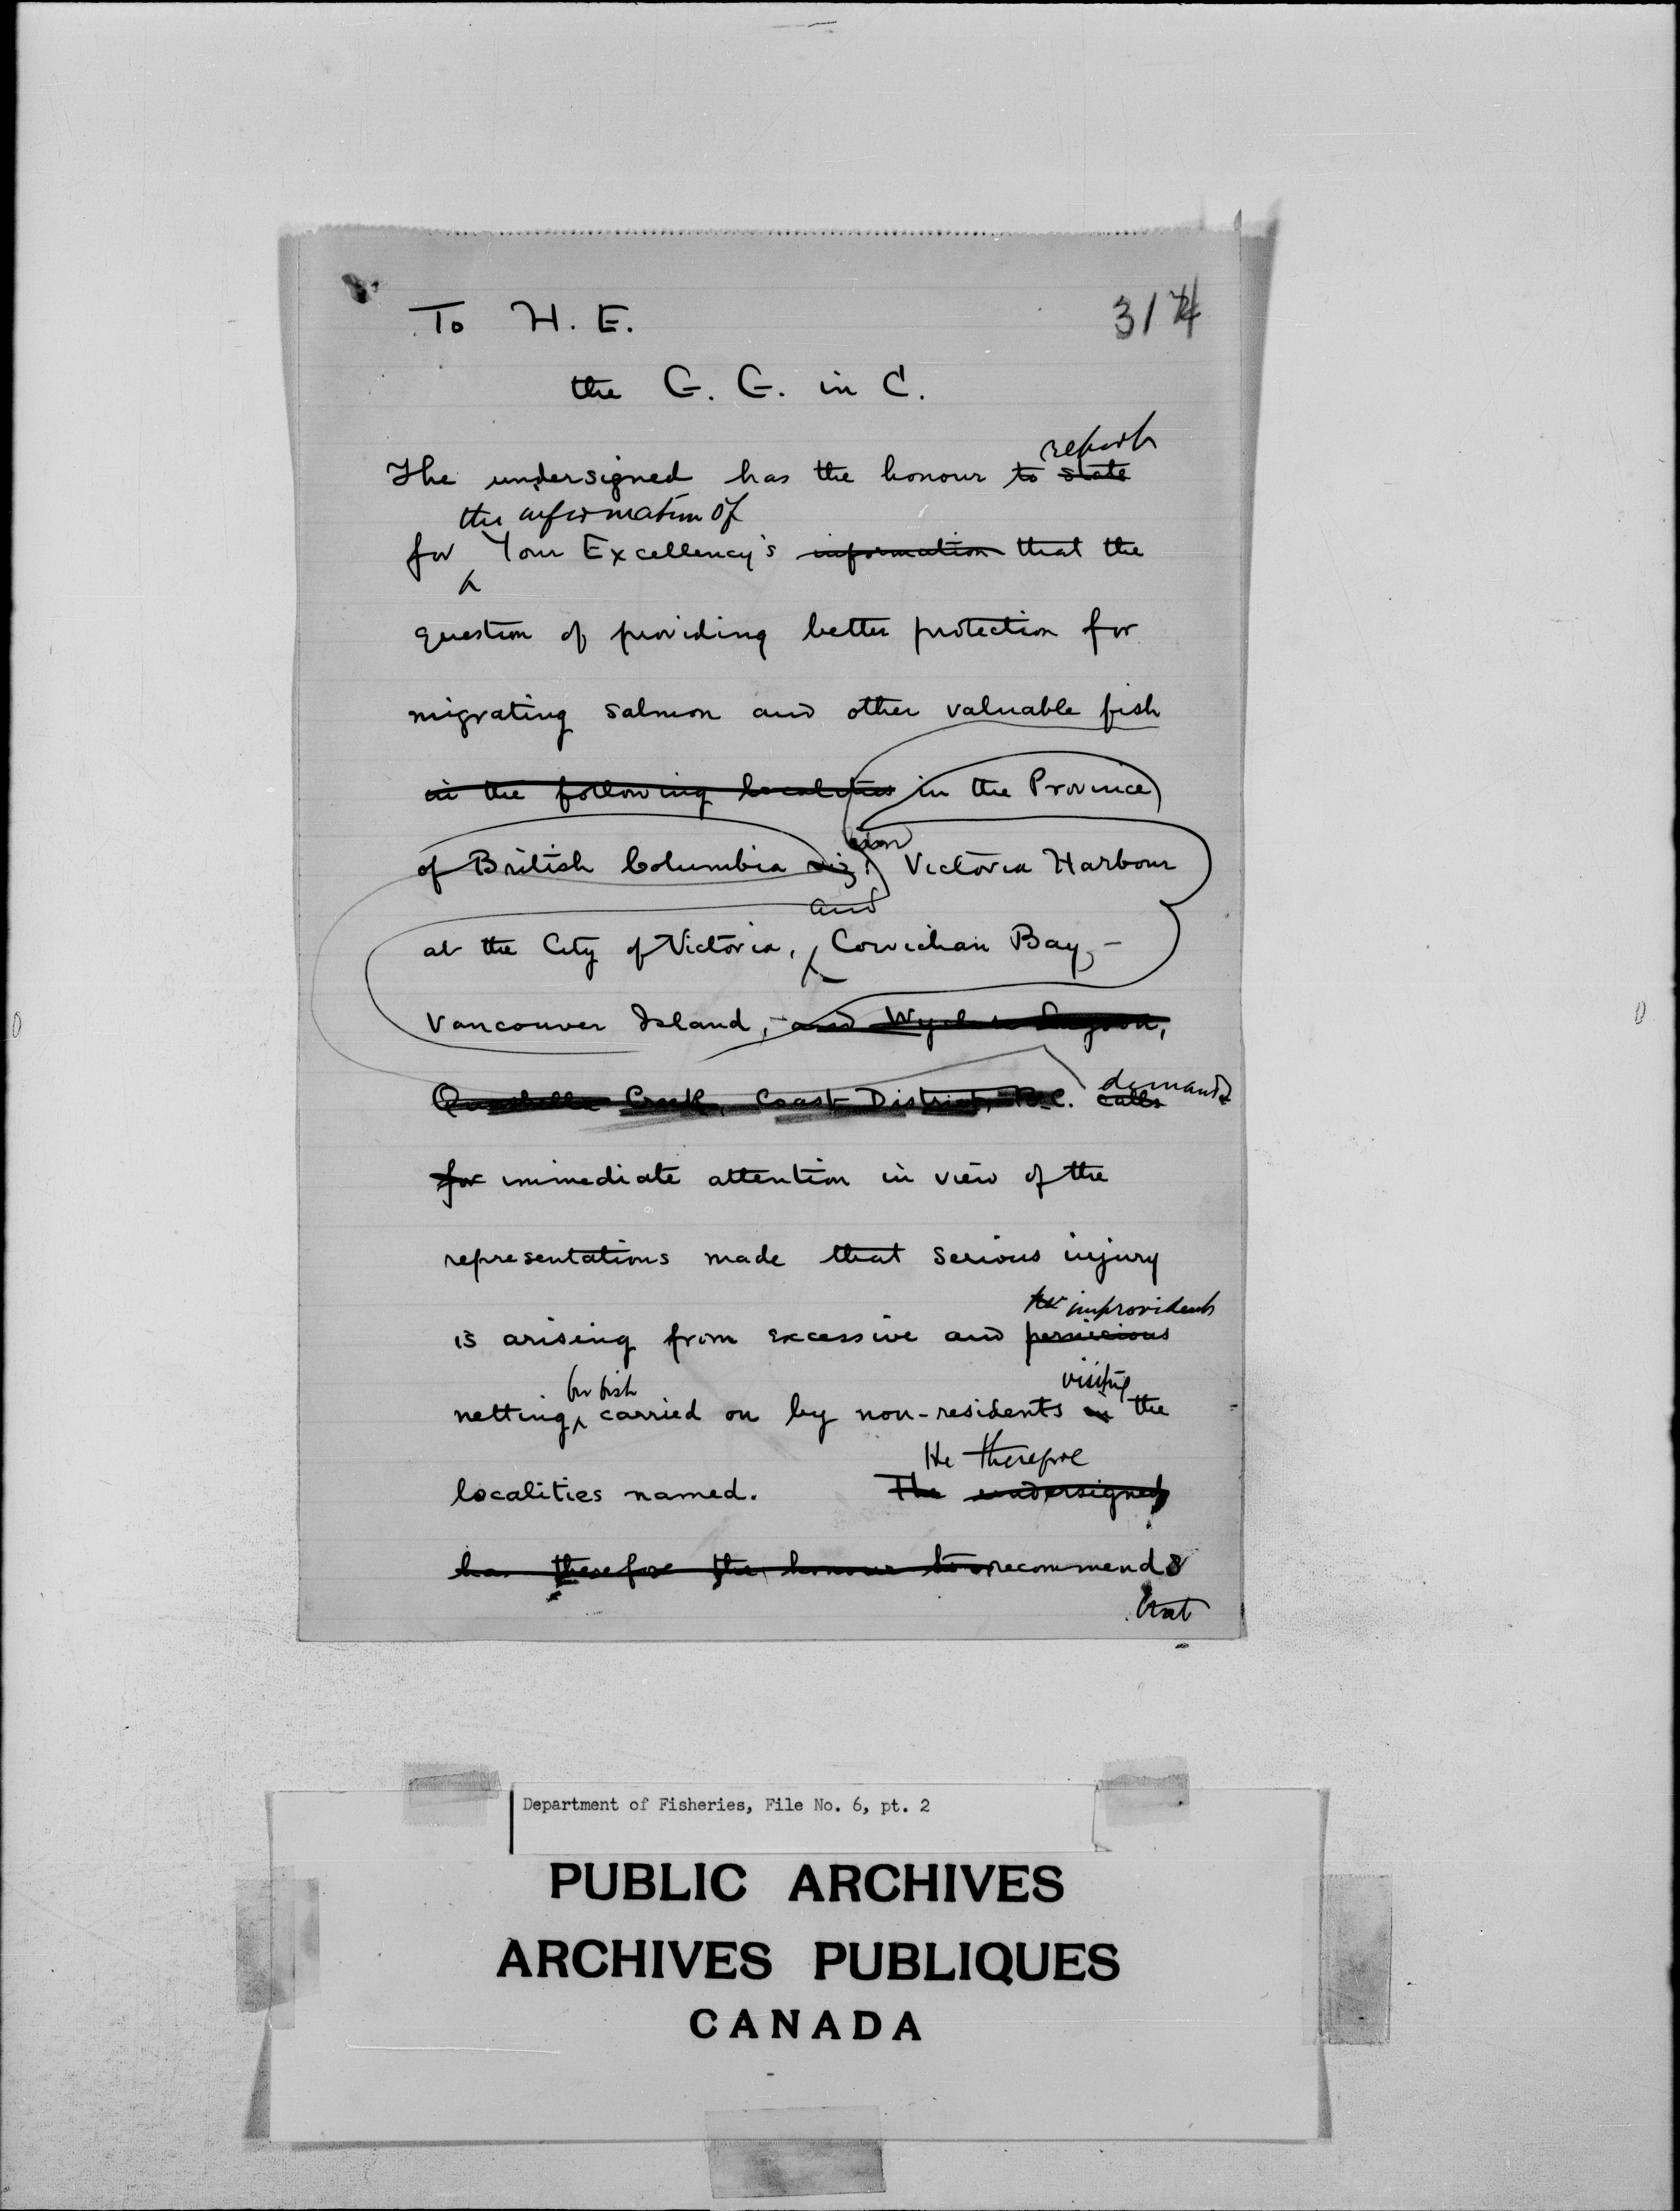 To H. E.
3174
the G. G. in C.
report
The undersigned has the honour to state
the information of
for Your Excellency's information that the
question of providing better protection for
migrating salmon and other valuable fish
in the following localities in the Province
of British Columbia viz: Victoria Harbour
and
at the City of Victoria, Cowichan Bay, -
Vancouver Island, and Lagoon,
Creek, Coast District, B.C. calls
demands
for immediate attention in view of the
representations made that serious injury
improvident
is arising from excessive and pernicious
for fish visiting
netting, carried on by non-residents in the
He therefore
localities named. The undersigned
has therefore the honour to recommends
that
Department of Fisheries, File No. 6, pt. 2
PUBLIC ARCHIVES
ARCHIVES PUBLIQUES
CANADA